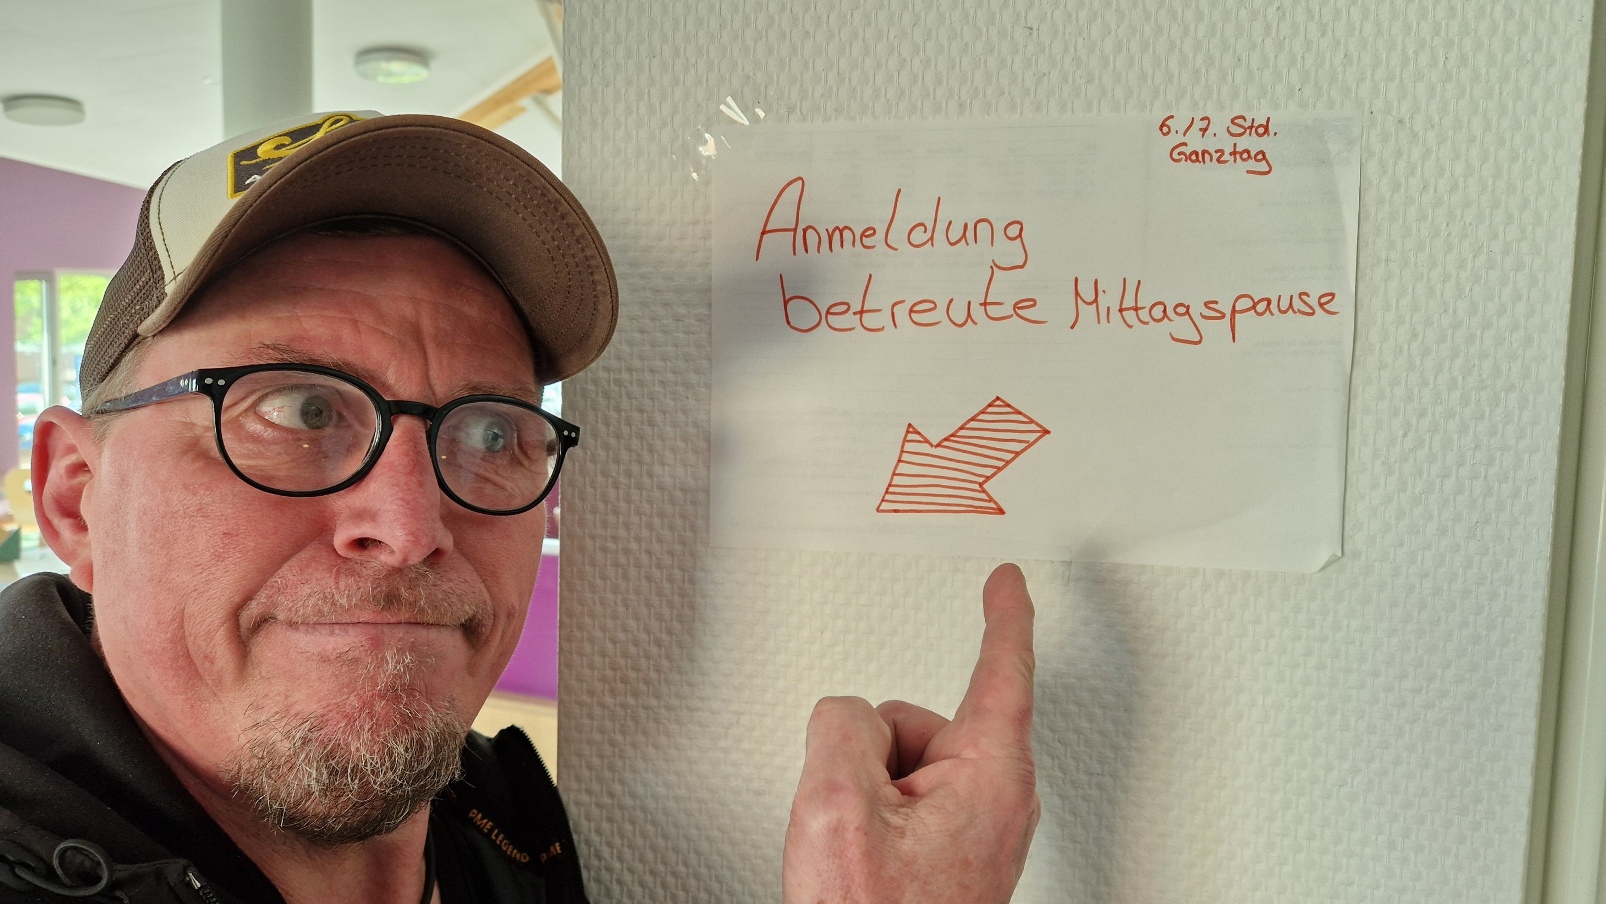 6./7. Std.
Ganztag
Anmeldung
betreute Mittagspause
PME LEGEND PME